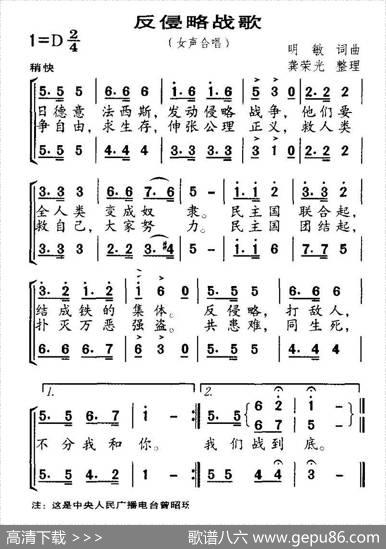 反侵略战歌
(女声合唱)
1=D 2/4
明 敏 词曲
龚荣光 整理
稍快
5. 5 5 | 6. 6 6 | 1. 6 5 6 | 5 3 0 | 2. 2 2 |
日德意 法西斯，发动侵略 战争，他们要
争自由，求生存，伸张公理 正义，救人类
5. 5 5 | 4. 4 4 | 3 1 0 | 5. 5 5 |
3. 3 3 | 6. 6 7 6 | 5 - | 1. 1 1 | 3. 2 2 |
全人类 变成奴 隶。民主国 联合起，
救自己，大家努 力。民主国 团结起，
3. 3 3 | 2. 2 3 #4 | 5 - | 6. 6 6 | 5. 5 5 |
3. 2 | 1. 2 | 1 6 | 3 0 | 5. 5 5 | 6. 6 6 |
结成铁的 集体。反侵略，打敌人，
扑灭万恶 强盗。共患难，同生死，
6. 6 | 6. 7 | 6 3 | 3 0 | 5. 5 5 | 4. 4 4 |
1. 2.
5. 5 6. 7 | 1 - :|| 5. 5 5 | 6 2 | 1 - ||
不分我和 你。 我们战到 底。
5. 5 6. 7 | 1 - :|| 5. 5 5
注：这是中央人民广播电台曾昭
高清下载 >>>
歌谱八六 www.gepu86.com